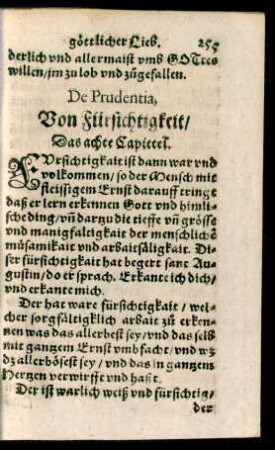 göttlicher Lieb. 255
derlich vnd allermaist vmb GOTtes
willen/jm zu lob vnd zügefallen.
De Prudentia,
Von Fürsichtigkeit/
Das achte Capittel.
FVrsichtigkait ist dann war vnd
volkommen/so der Mensch mit
fleissigem Ernst darauff tringt
daß er lern erkennen Gott vnd himli-
sche ding/vñ darzu die tieffe vñ grösse
vnd manigfaltigkait der menschlichē
müsamikait vnd arbaitsäligkait. Di-
ser fürsichtigkait hat begert sant Au-
gustin/do er sprach. Erkante ich dich/
vnd erkante mich.
Der hat ware fürsichtigkait/wel-
cher sorgfältigklich arbait zü erken-
nen was das allerbest sey/vnd das selb
mit gantzem Ernst vmbfacht/vnd wz
dz allerbösest sey/vnd das in gantzem
Hertzen verwirfft vnd haßt.
Der ist warlich weiß vnd fürsichtig/
der